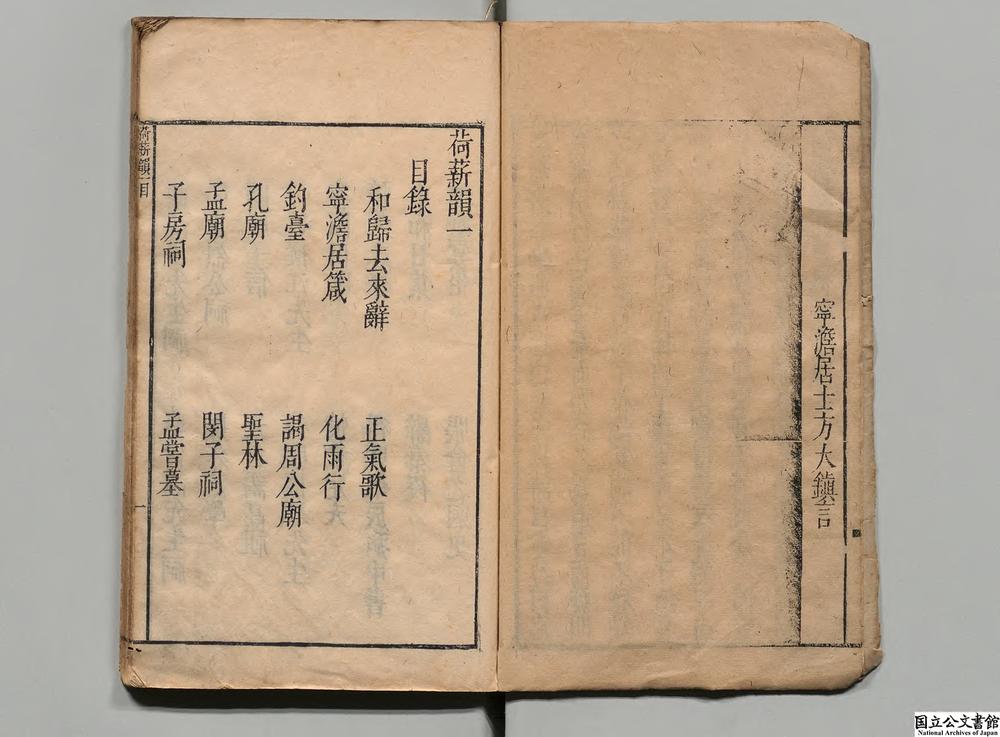 寧澹居士方大鎮言
荷薪韻一
目錄
和歸去來辭 正氣歌
寧澹居箴 化雨行
釣臺 謁周公廟
孔廟 聖林
孟廟 閔子祠
子房祠 孟嘗墓
荷薪韻一目
一
国立公文書館
National Archives of Japan